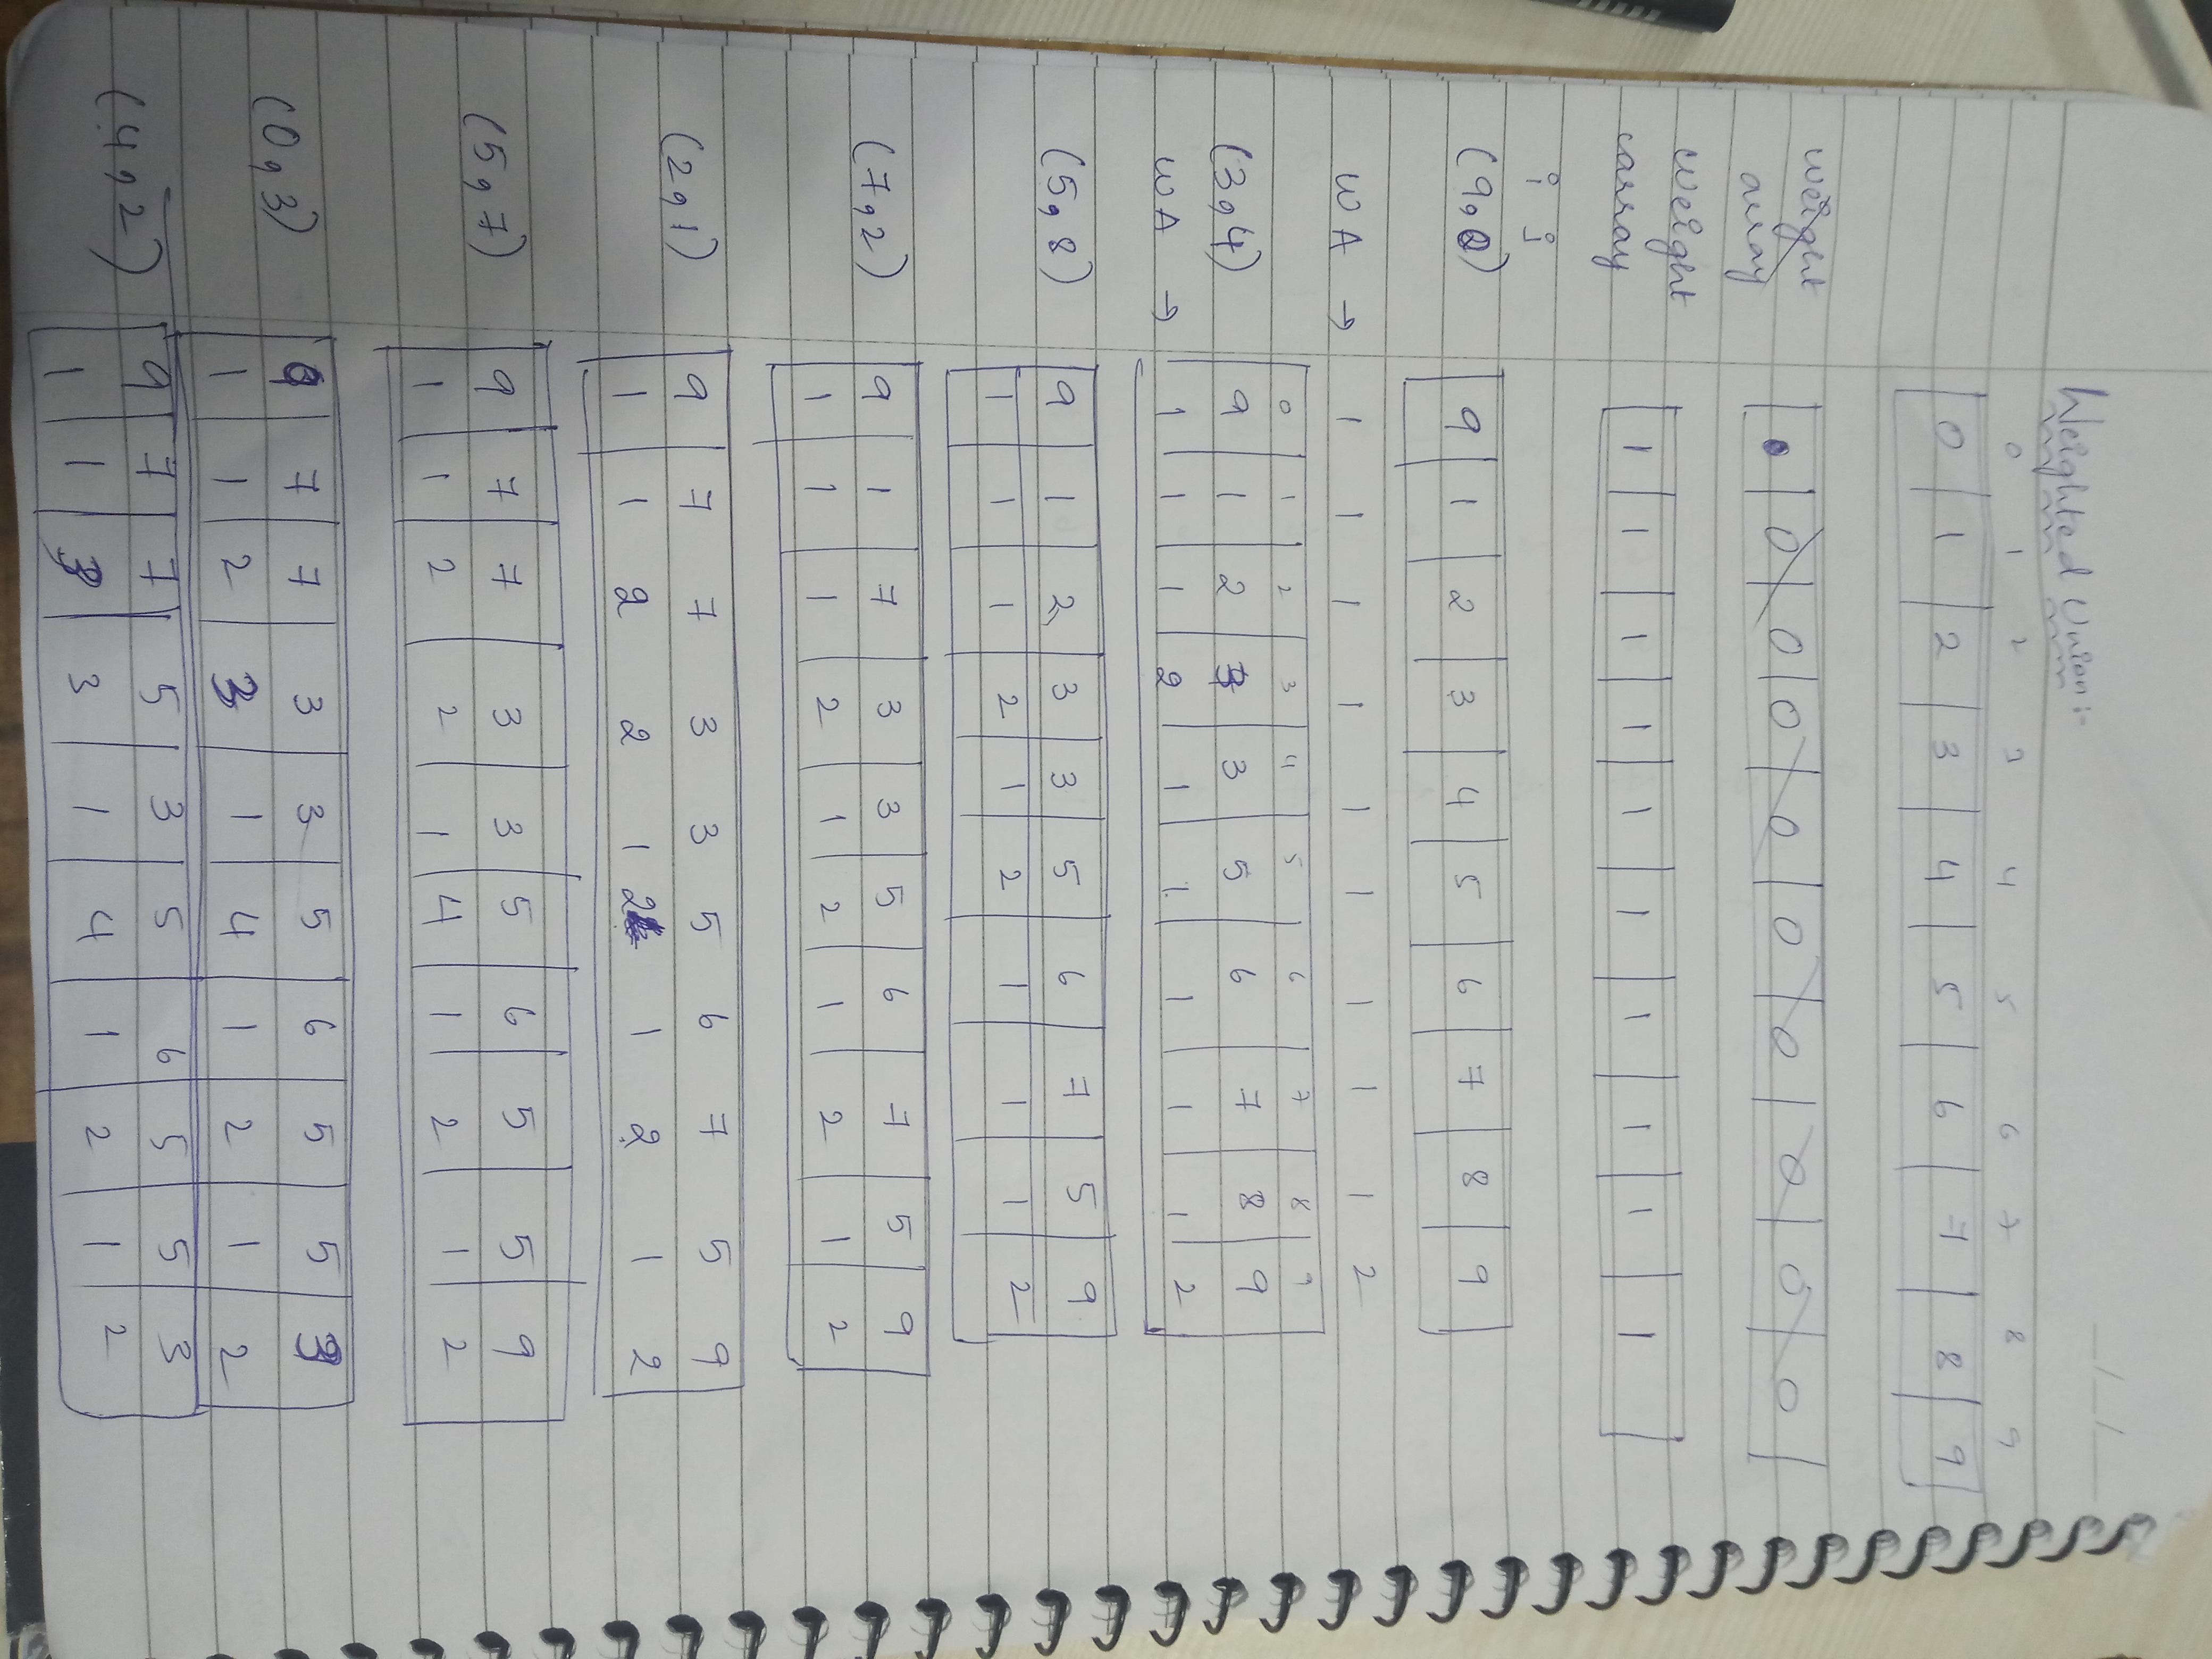 Weighted Union :-
0 1 2 3 4 5 6 7 8 9
0 1 2 3 4 5 6 7 8 9
weight
array
0 0 0 0 0 0 0 0 0
weight
array
1 1 1 1 1 1 1 1 1 1
i j
(9,0) 9 1 2 3 4 5 6 7 8 9
WA → 1 1 1 1 1 1 1 1 1 2
0 1 2 3 4 5 6 7 8 9
(3,4) 9 1 2 3 3 5 6 7 8 9
WA → 1 1 1 2 1 1 1 1 1 2
(5,8) 9 1 2 3 3 5 6 7 5 9
1 1 1 2 1 2 1 1 1 2
(7,2) 9 1 7 3 3 5 6 7 5 9
1 1 1 2 1 2 1 2 1 2
(2,1) 9 7 7 3 3 5 6 7 5 9
1 1 2 2 1 2 1 2 1 2
(5,7) 9 7 7 3 3 5 6 5 5 9
1 1 2 2 1 4 1 2 1 2
(0,3) 9 7 7 3 3 5 6 5 5 3
1 1 2 3 1 4 1 2 1 2
(4,2) 9 7 7 5 3 5 6 5 5 3
1 1 3 1 4 1 2 1 2